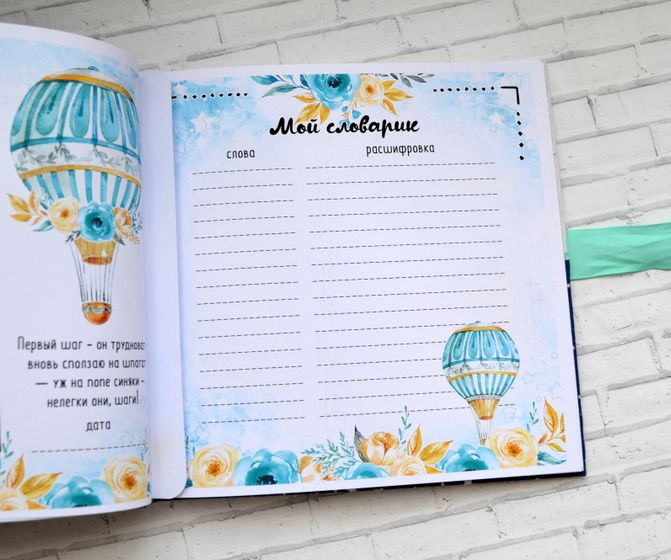 Первый шаг - он трудноват
вновь сползаю на шпагат
— уж на попе синяки -
нелегки они, шаги!
дата
Мой словарик
слова
расшифровка